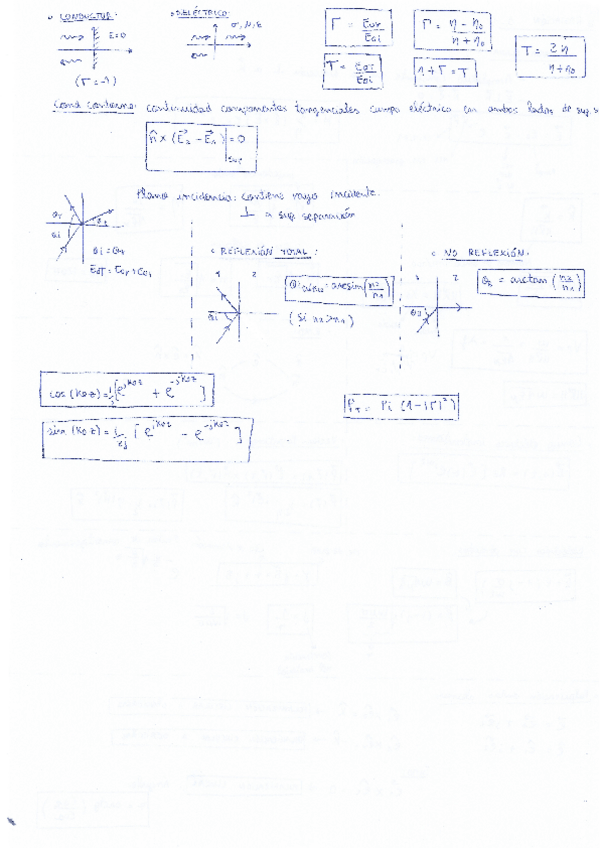 • CONDUCTOR:
E=0
(Γ = -1)
• DIELÉCTRICO:
σ, μ, ε
Γ = Eor / Eoi
Γ = η - η0 / η + η0
T = 2η / η + η0
T = EoT / Eoi
1 + Γ = T
Cond. contorno: continuidad componentes tangenciales campo eléctrico en ambos lados de sup. s
n̂ × (E⃗2 - E⃗1)|sup = 0
Plano incidencia: contiene rayo incidente.
⊥ a sup separación
θr
θi
θt
θi = θr
• REFLEXIÓN TOTAL:
1 2
θi
arcsin (n2/n1)
• NO REFLEXIÓN:
1 2
θB = arctan (n2/n1)
cos (k0z) = 1/2 [e^jk0z + e^-jk0z]
sin (k0z) = 1/2j [e^jk0z - e^-jk0z]
PT = Pi (1-|Γ|²)